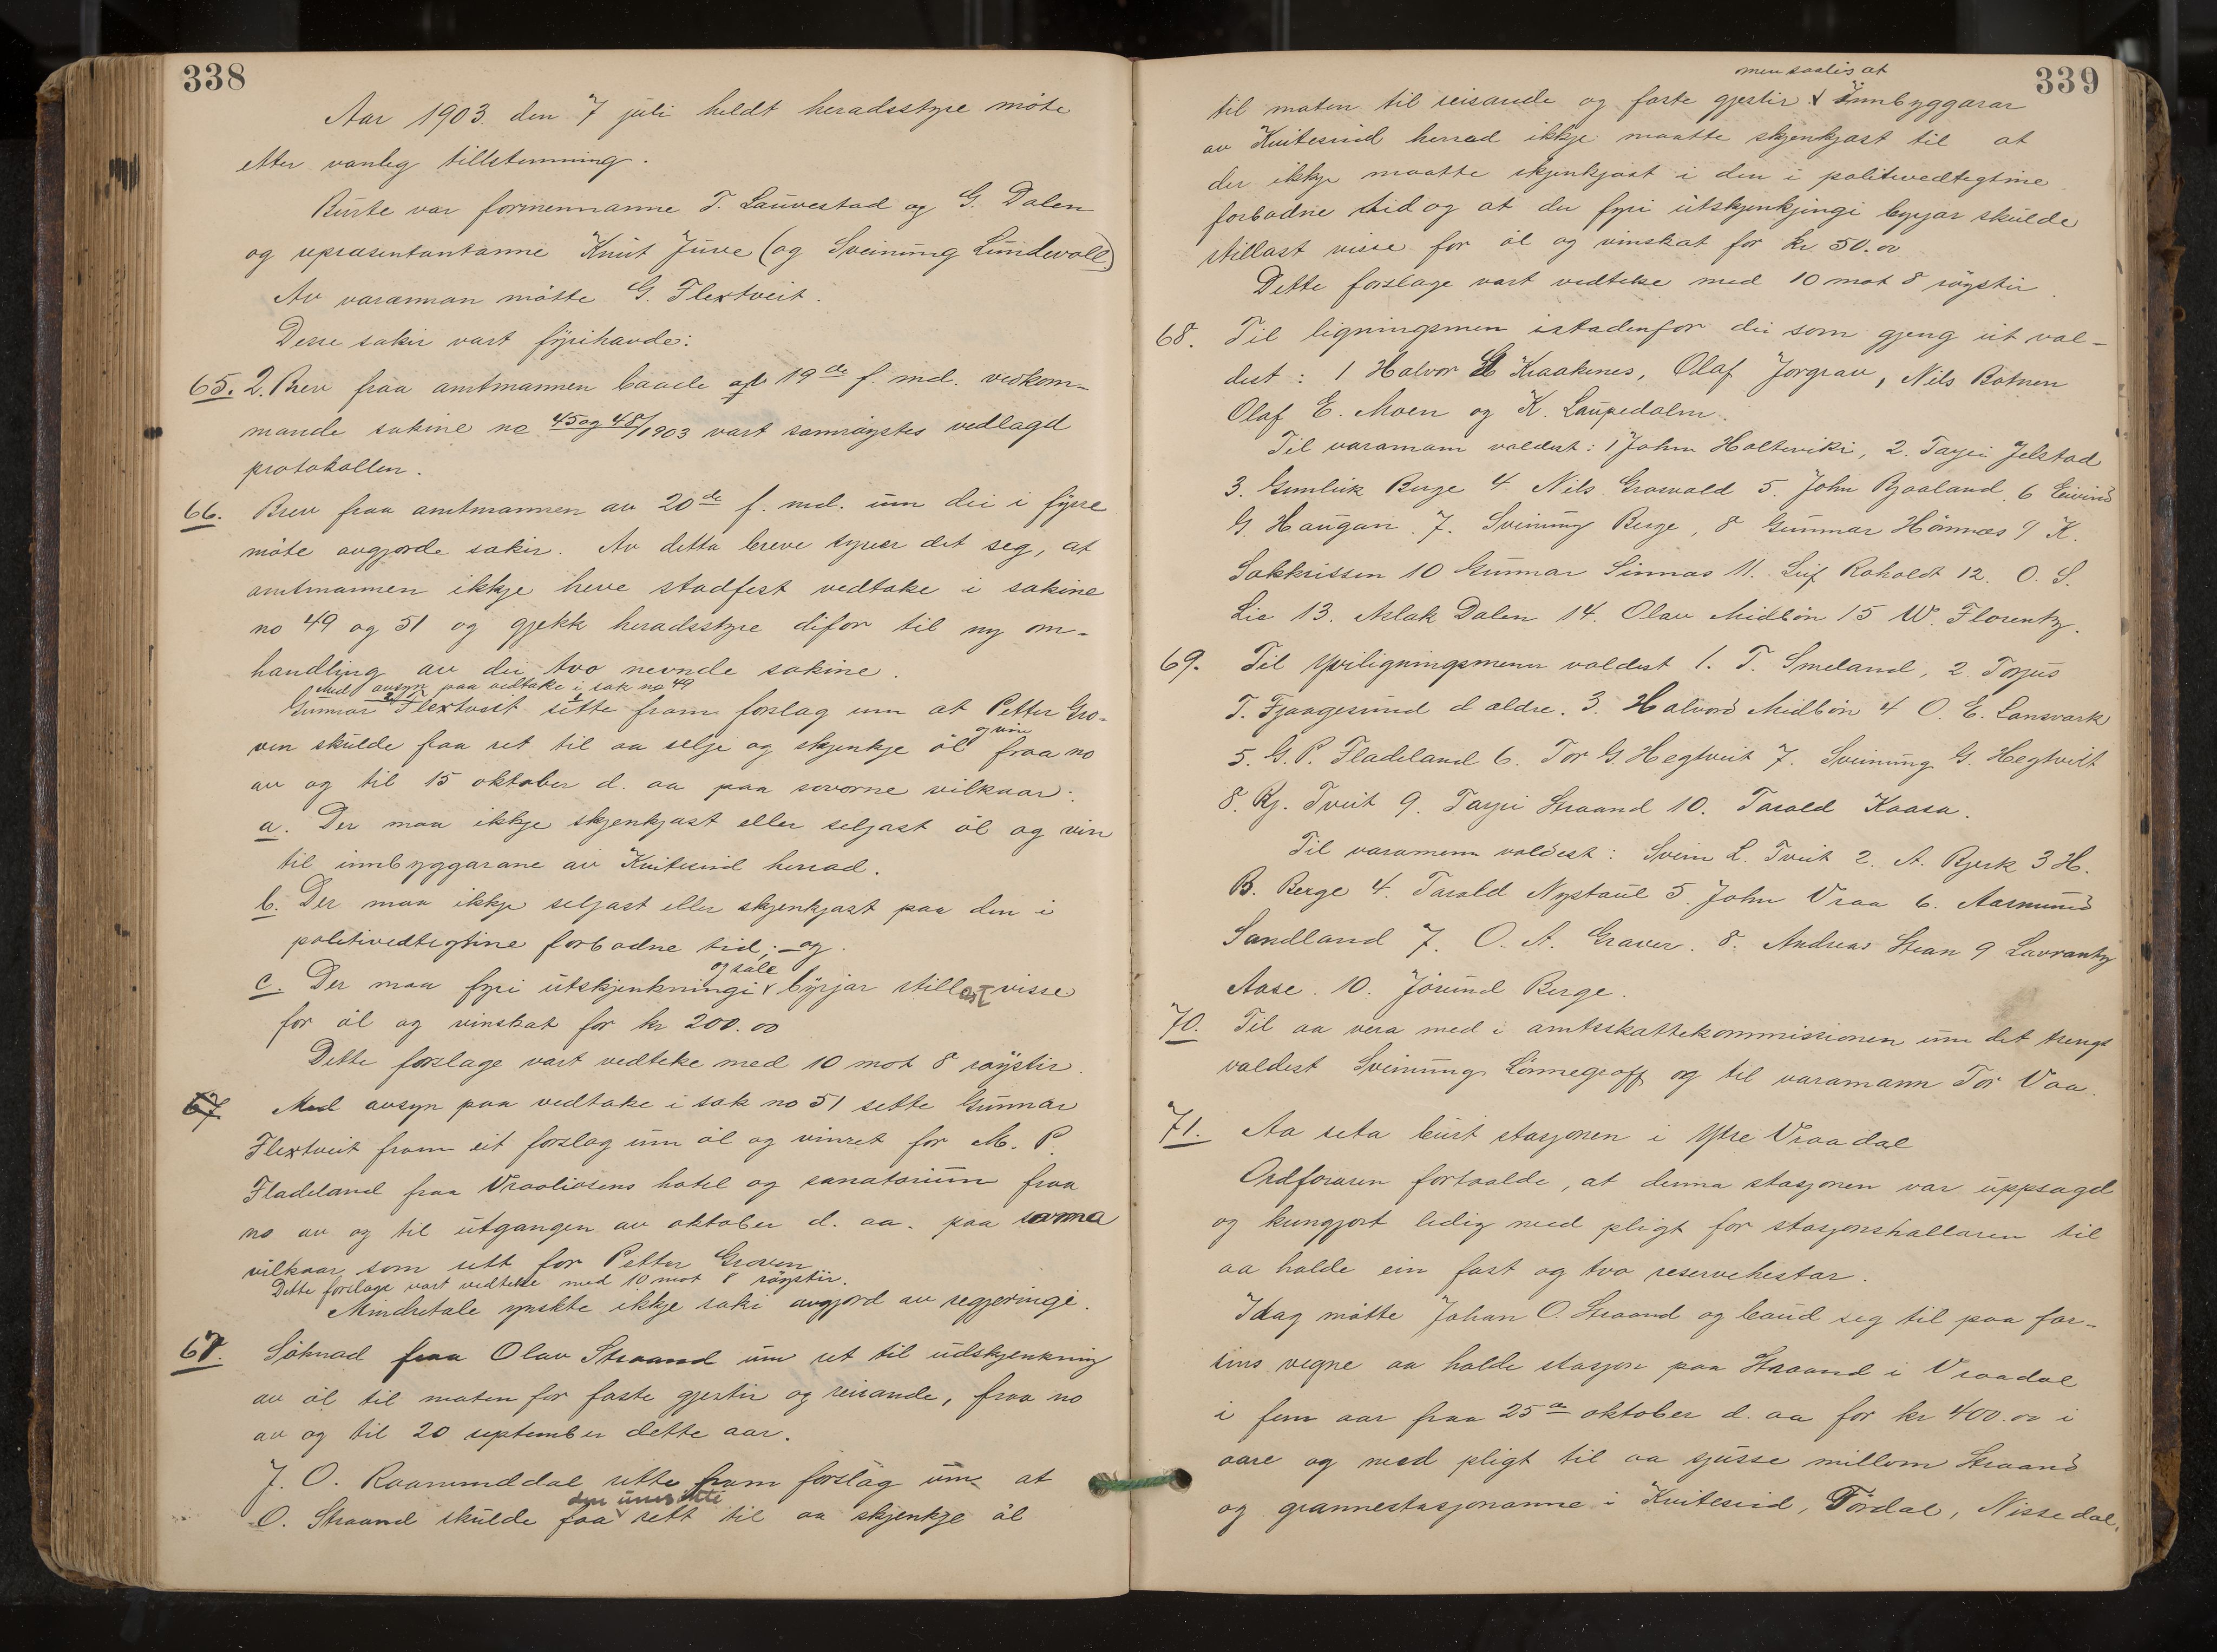 338
Aar 1903 den 7 juli heldt heradsstyre möte
etter vanleg tillstemning.
Burte var formennanne T. Lauvestad og G. Dalen
og representantanne Knut Juve (og Sveinung Lundevall)
Av varamnan mötte G. Flextveit.
Desse sakir vart fyrihavde:
65. 2. Brev fraa amtmannen baade af 19de f. md. vedkom-
mande sakine no 45 og 48/1903 vart samröystes vedlagd
protokollen.
66. Brev fraa amtmannen av 20de f. md. um dei i fyrre
möte avgjorde sakir. Av detta breve syner det seg, at
amtmannen ikkje heve stadfest vedtake i sakine
no 49 og 51 og gjekk heradsstyre difor til ny om-
handling av dei tvo nevnde sakine.
Med avsyn paa vedtake i sak no 49
Gunnar Flextveit sette fram forslag um at Petter Gro-
ven skulde faa ret til aa selje og skjenkje öl og vin fraa no
av og til 15 oktober d. aa paa sovorne vilkaar:
a. Der maa ikkje skjenkjast eller seljast öl og vin
til innbyggarane av Kviteseid herrad.
b. Der maa ikkje seljast eller skjenkjast paa den i
politivedtegtine forbodne tid; og
c. Der maa fyri utskjenkningi og sale byrjar stillast visse
for öl og vinskat for kr 200.00
Dette forslage vart vedteke med 10 mot 8 röystir.
67 Med avsyn paa vedtake i sak no 51 sette Gunnar
Flextveit fram eit forslag um öl og vinret for M. P.
Fladeland fraa Vraaliosens hotel og sanatorium fraa
no av og til utgangen av oktober d. aa. paa sama
vilkaar som sett for Petter Groven
Dette forslage vart vedteke med 10 mot 8 röystir.
Mindretale ynskte ikkje saki avgjord av regjeringi.
67. Söknad fraa Olav Straand um ret til udskjenkning
av öl til maten for faste gjestir og reisande, fraa no
av og til 20 september dette aar.
J. O. Raamunddal sette fram forslag um at
O. Straand skulde faa den umsökte rett til aa skjenkje öl
339
men soleis at
til maten til reisande og faste gjestir Innbyggarar
av Kviteseid herrad ikkje maatte skjenkjast til at
der ikkje maatte skjenkjast i den i politivedtegtine
forbodne tid og at der fyri utskjenkjingi byrjar skulde
stillast visse for öl og vinskat for kr 50.00
Dette forslage vart vedteke med 10 mot 8 röystir.
68. Til ligningsmen istadenfor dei som gjeng ut val-
dest: 1 Halvor Kraakenes, Olaf Jorgrav, Nils Botnen
Olaf E. Moen og K. Laupedalen.
Til varamam valdest: 1 John Holteviki, 2. Tarjei Jelstad
3. Gunleik Berge 4 Nils Groovald 5. John Bjaaland 6 Eivind
G. Haugan. 7. Sveinung Berge, 8 Gunnar Hönnæs 9 K.
Sakkrissen 10 Gunnar Sinnas 11. Leif Roholdt 12. O. S.
Lie 13. Aslak Dalen 14. Olav Midbön 15 W. Florentz.
69. Til yviligningsmenn valdest 1. T. Smeland, 2. Torjus
T. Fjaagesund d ældre. 3. Halvord Midbön 4 O. E. Lansvark
5. G. P. Fladeland 6. Tor G. Hegtveit 7. Sveinung G. Hegtveit
8. Kj. Tveit 9. Tarjei Straand 10. Tarald Kaasa.
Til varamenn valdest: Svein L. Tveit 2. A. Bjerk 3 H.
B. Berge 4. Tarald Nystaul 5. John Vraa 6. Aasmund
Sandland 7. O. A. Graver. 8. Andreas Stran 9 Lavrantz
Aase. 10. Jörund Berge.
70. Til aa vera med i amtsskattekommissionen um det trengs
valdest Sveinung Lönnegraff og til varamann Tor Vaa.
71. Aa seta burt stasjonen i Ytre Vraadal
Ordföraren fortaalde, at denna stasjonen var uppsagd
og kungjort ledig med pligt for stasjonshallaren til
aa halde ein fast og tvo reservehestar.
Idag mötte Johan O. Straand og baud seg til paa far-
sins vegne aa halde stasjon paa Straand i Vraadal
i fem aar fraa 25de oktober d. aa for kr 400.00 i
aare og med pligt til aa sjusse millom Straand
og grannestasjonanne i Kviteseid, Tördal, Nissedal,